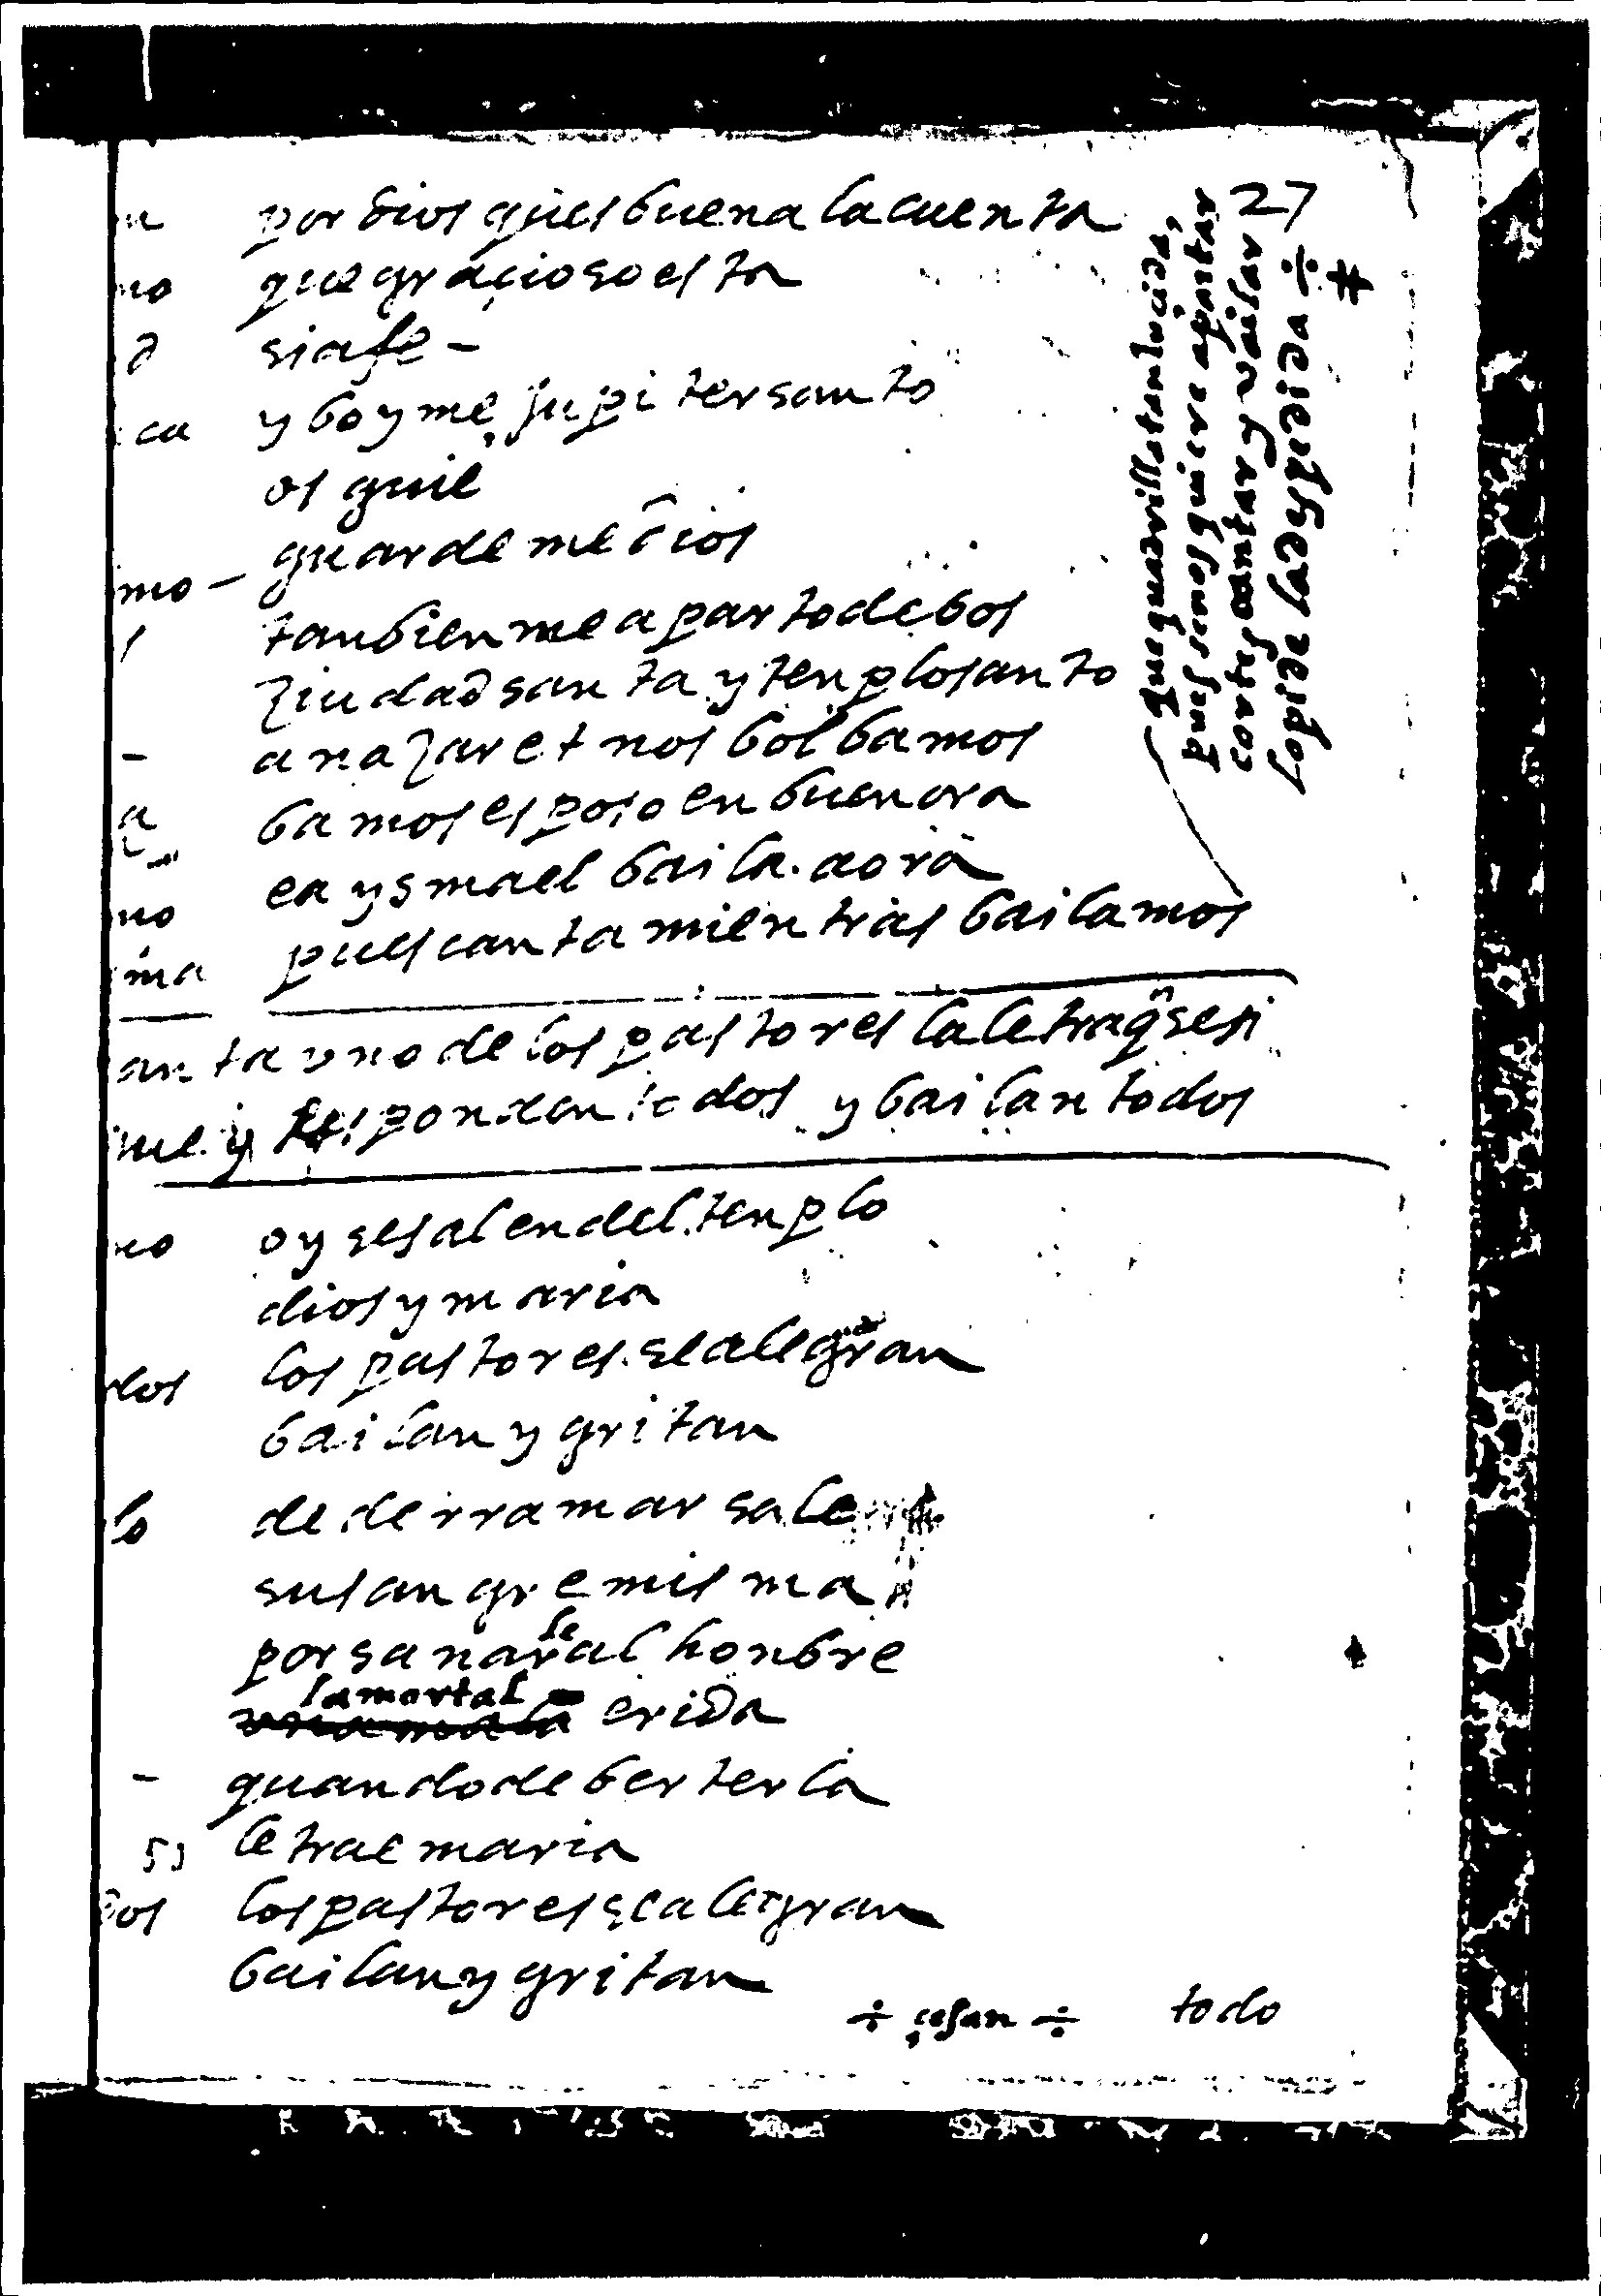 27
por dios ques buena la cuenta
no que graçioso esta
d si a fe -
ca y boyme jupiter santo
os guie
mo - guardeme dios
tanbien me aparto de bos
ziudad santa y tenplo santo
- a nazaret nos bolbamos
a bamos esposo en buen ora
no ea ysmael baila aora
ma pues canta mientras bailamos
que quadrilla tan lucida,
pues se nos quiere apartar
cortes cantar y vailar
lo pide la despedida ÷
#
anta vno de los pastores la letra q̃ se si
ue y Responden todos y bailan todos
no oy se salen del tenplo
dios y maria
dos los pastores se alegran
bailan y gritan
lo de derramar sale
su sangre misma
por sanarle al honbre
la mortal erida
- quando de berterla
le trae maria
dos los pastores se alegran
bailan y gritan
÷ çesan ÷ todo